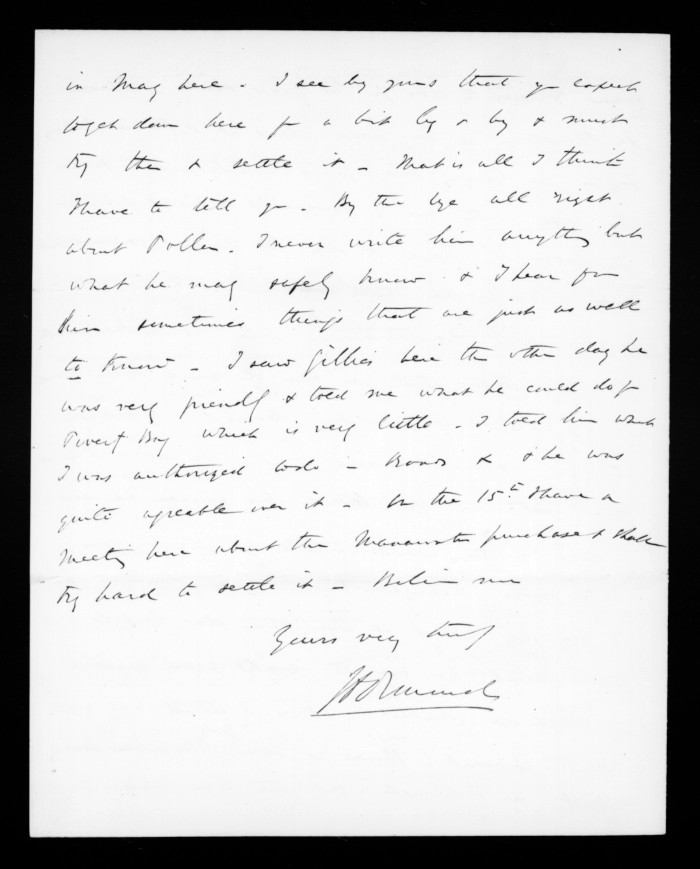 in May here - I see by yours that you expect
to get down here for a bit by & by & must
try then & settle it - That is all I think
I have to tell you - By the bye all right
about Tollen. I never write him anything but
what he may safely know & I hear from
him sometimes things that are just as well
to know - I saw Gillies here the other day he
was very friendly & told me what he could do for
Poverty Bay which is very little - I told him what
I was authorized to do - Roads & & he was
quite agreable over it - On the 15th I have a
Meeting here about the Manawatu purchase & shall
try hard to settle it - Believe me
Yours very truly
JD Ormond